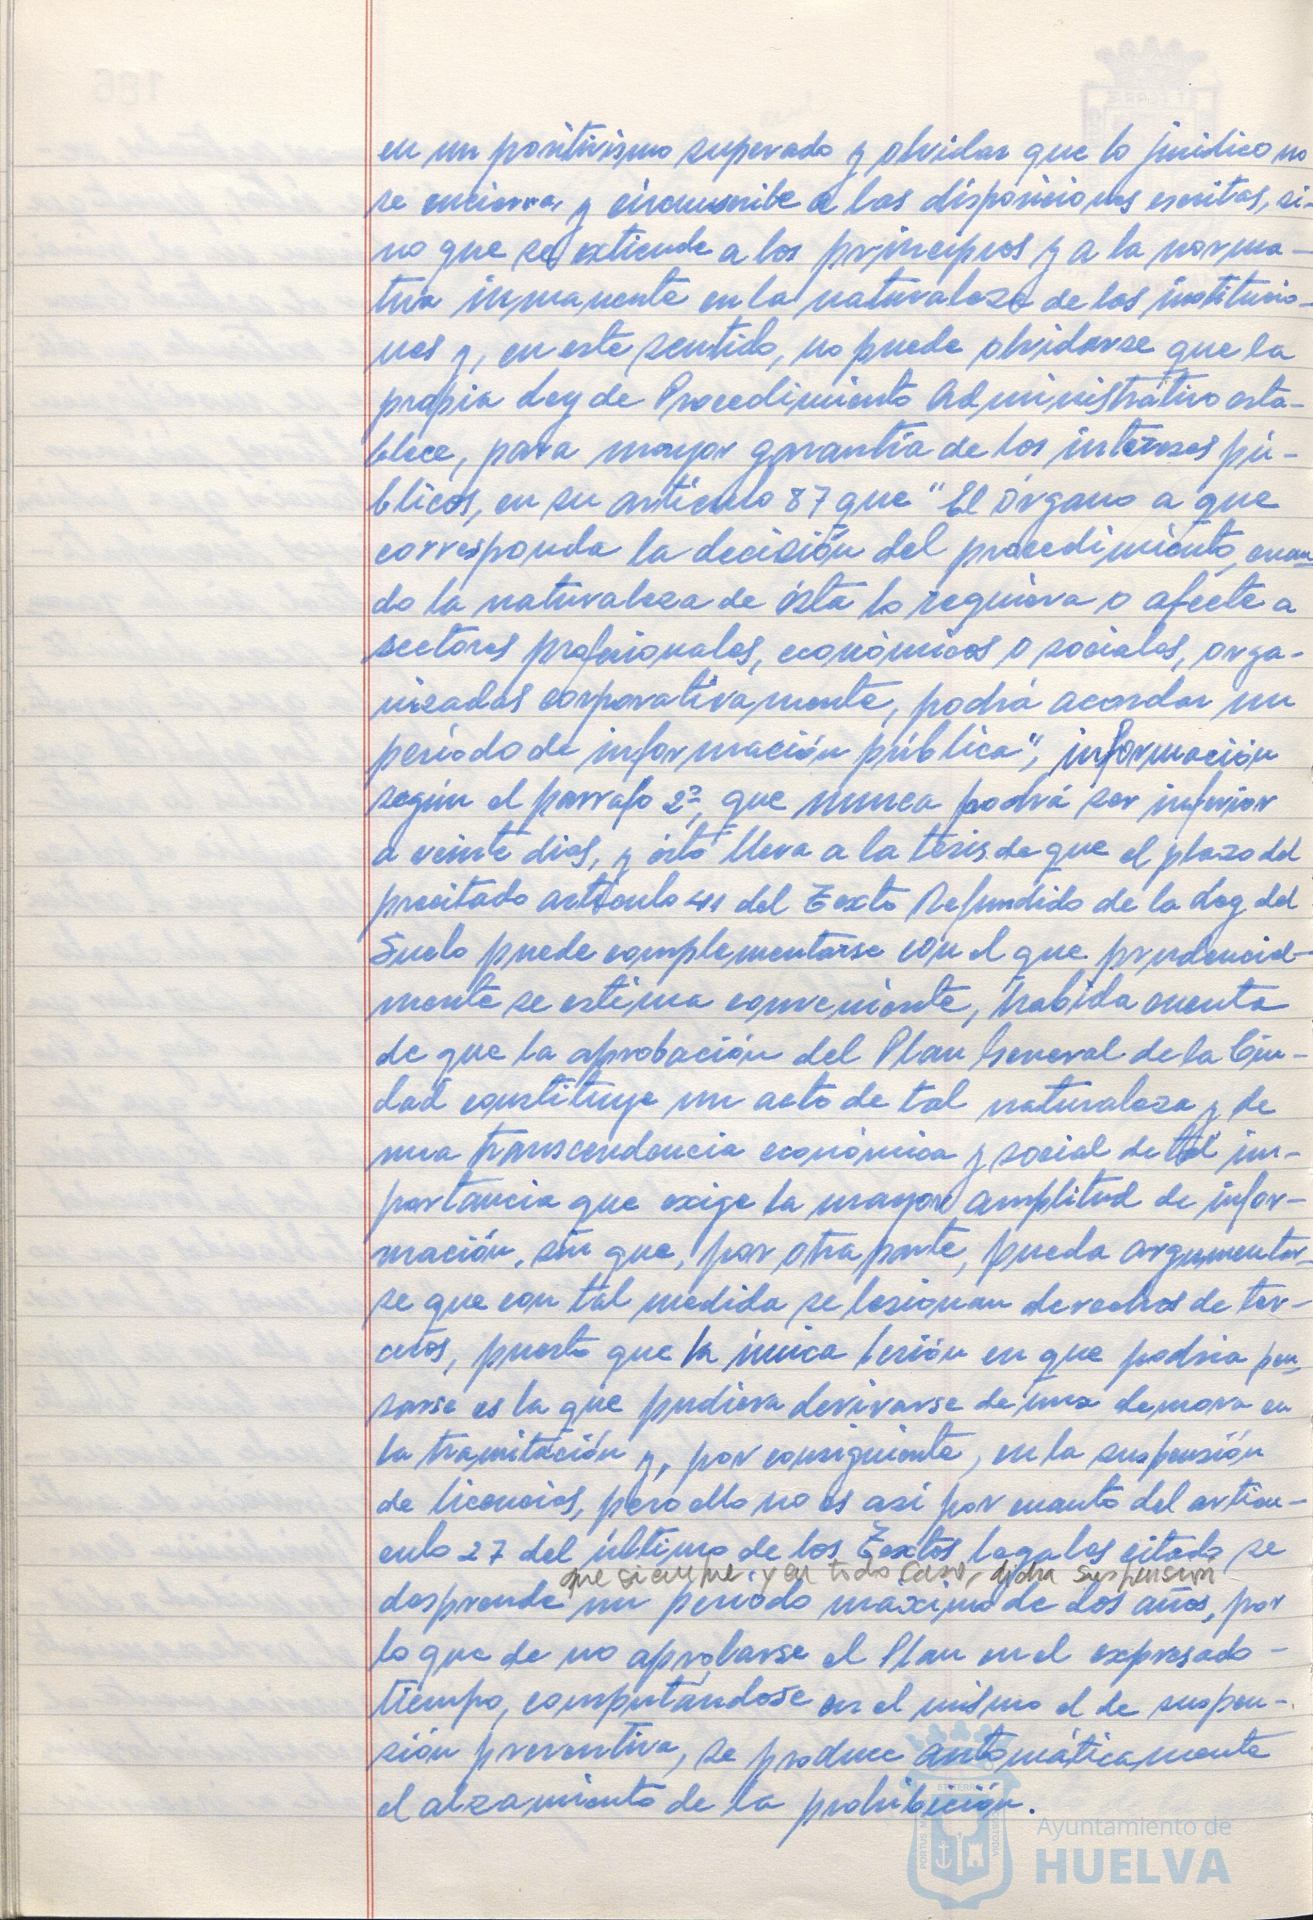 en un positivismo superado y olvidar que lo jurídico no
se encierra y circunscribe a las disposiciones escritas, si-
no que se extiende a los principios y a la norma-
tiva inmanente en la naturaleza de las institucio-
nes y, en este sentido, no puede olvidarse que la
propia Ley de Procedimiento Administrativo esta-
blece, para mayor garantía de los intereses pú-
blicos, en su artículo 87 que "El órgano a que
corresponda la decisión del procedimiento, cuan-
do la naturaleza de ésta lo requiera o afecte a
sectores profesionales, económicos o sociales, orga-
nizadas corporativamente, podrá acordar un
período de información pública", información
según el parrafo 2º, que nunca podrá ser inferior
a veinte dias, y ésto lleva a la tesis de que el plazo del
precitado artículo 41 del Texto Refundido de la Ley del
Suelo puede complementarse con el que prudencial-
mente se estima conveniente, habida cuenta
de que la aprobación del Plan General de la Ciu-
dad constituye un acto de tal naturaleza y de
una transcendencia económica y social de tal im-
portancia que exige la mayor amplitud de infor-
mación, sin que, por otra parte, pueda argumentar-
se que con tal medida se lesionan derechos de ter-
ceros, puesto que la única lesión en que podría pen-
sarse es la que pudiera derivarse de una demora en
la tramitación y, por consiguiente, en la suspensión
de licencias, pero ello no es así por cuanto del artícu-
culo 27 del último de los Textos legales citado se
que siempre y en todo caso, dicha suspensión
desprende un período máximo de dos años, por
lo que de no aprobarse el Plan en el expresado -
tiempo, computándose en el mismo el de suspen-
sión preventiva, se produce automáticamente
el alzamiento de la prohibición.
Ayuntamiento de
HUELVA